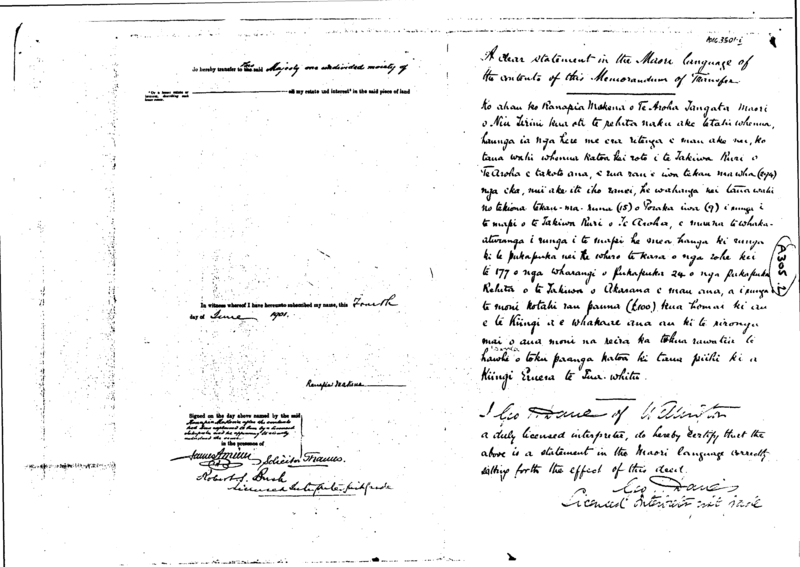 do hereby transfer to the said His Majesty one undivided moiety of
all my estate and interest in the said piece of land
In witness whereof I have hereunto subscribed my name, this Fourth
day of June 1901.
Ranapia Mokena
Signed on the day above named by the said
Ranapia Mokena after the contents
had been explained to him by a licensed
interpreter and he appearing to clearly
understand the same
in the presence of
Solicitor Thames.
Robert S. Bush
Licensed Interpreter first grade
A clear statement in the Maori language of
the contents of this Memorandum of Transfer
Ko ahau ko Ranapia Mokena o Te Aroha Tangata Maori
o Niu Tirini kua oti te rehita naku ake tetahi whenua,
haunga ia nga here me era ritenga e mau ake nei, ko
taua wahi whenua katoa kei roto i te Takiwa Ruri o
Te Aroha e takoto ana, e rua rau e iwa tekau ma wha (294)
nga eka, nui ake iti iho ranei, he wahanga nei taua wahi
no tekiona tekau-ma-rima (15) o Poraka iwa (9) i runga i
te mapi o te Takiwa Ruri o Te Aroha, e mau na te whaka-
aturanga i runga i te mapi he mea hanga ki runga
ki te pukapuka nei he whero te kara o nga rohe kei
te 177 o nga wharangi o pukapuka 24 o nga pukapuka
Rehita o te Takiwa o Akarana e mau ana, a i runga
te moni kotahi rau pauna (£100) kua homai ki au
e te Kiingi a e whakaae ana au ki te rironga
mai o aua moni na reira ka tukua rawatia te
hawhe o toku paanga katoa ki taua piihi ki a
Kiingi Eruera te Tua-whitu.
I Geo Davies of
a duly licensed interpreter, do hereby certify that the
above is a statement in the Maori language correctly
setting forth the effect of this deed.
Geo Davies
Licensed Interpreter 1st grade
A305